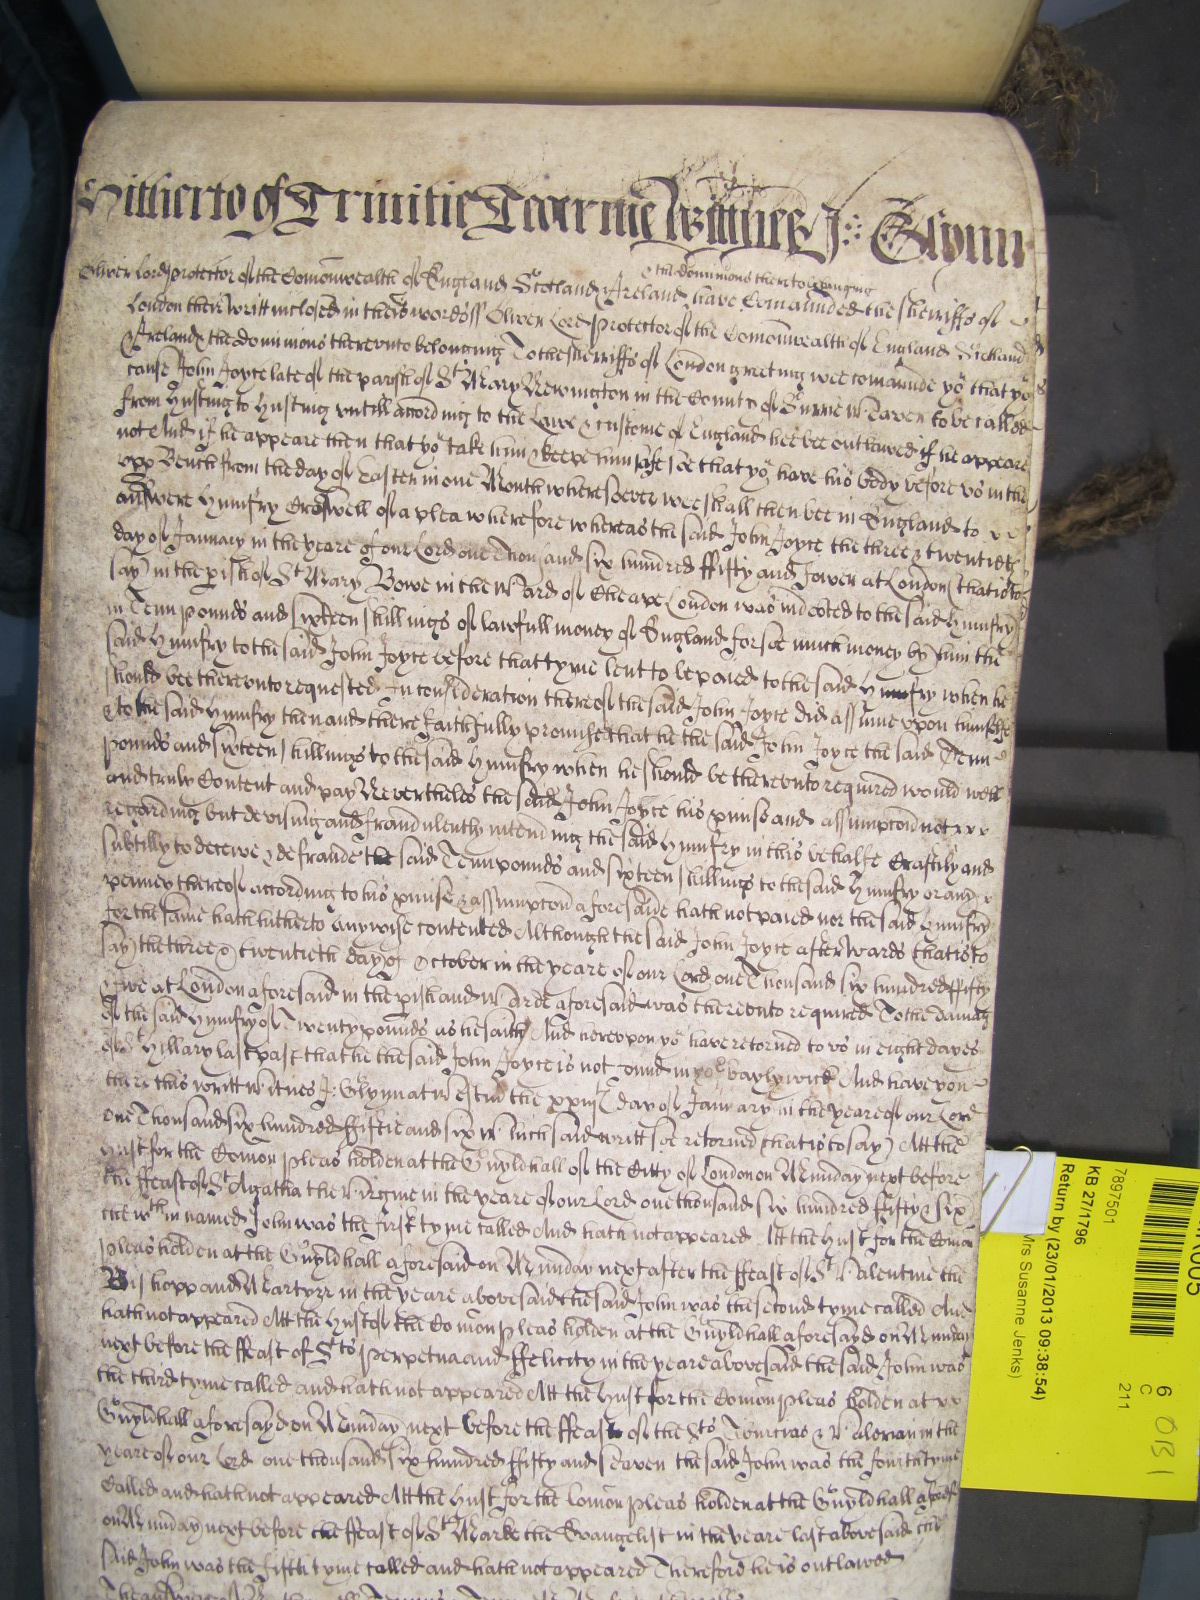 Hitherto of Trinitie Tearme Wittnes J: Glynn
& the dominions thereto belonging
Oliver Lord Protector of the Comonwealth of England Scotland & Ireland have Comaunded the Sheriffs of
London their writt inclosed in theis words ss Oliver Lord Protector of the Comonwealth of England Scotland
& Ireland & the dominions thereunto belonging To the Sheriffs of London greeting wee comaunde yo that yo
cause John Joyce late of the parish of St Mary Newington in the County of Surrie Weaver to be called
from Husting to Husting untill according to the Lawe & custome of England hee bee outlawed if he appeare
not And if he appeare then that yo take him & keepe him safe soe that yo have his body before us in the
upp Bench from the day of Easter in one Month wheresoever wee shall then bee in England to
answere Humfry Croswell of a plea wherefore whereas the said John Joyce the three & twentieth
day of January in the yeare of our Lord one thousand six hundred ffifty and fower at London (that is to
say) in the pish of St Mary Bowe in the Ward of Cheape London was indebted to the said Humfry
in Tenn pounds and sixteen shillings of lawfull money of England for soe much money by him the
said Humfry to the said John Joyce before that tyme lent to be paied to the said Humfry when he
should bee thereunto requested In consideration thereof the said John Joyce did assume upon himselfe
& to the said Humfry then and there faithfully promise that he the said John Joyce the said Tenn
pounds and sixteen shillings to the said Humfry when he should be thereunto required would well
and truly Content and pay Neverthelès the said John Joyce his pmise and assumpcon not
regarding but devising and fraudulently intending the said Humfry in this behalfe Craftily and
subtilly to deceive & defraude the said Tenn pounds and sixteen shillings to the said Humfry or any
penney thereof according to his pmise & assumpcon aforesaide hath not paied nor the said Humfry
for the same hath hitherto anywise contented Although the said John Joyce afterwards that is to
say the three & twentieth day of October in the yeare of our Lord one Thousand six hundred ffifty
& five at London aforesaid in the pish and Warde aforesaid was thereunto required To the damag
of the said Humfry of Twenty pounds as he saith And hereupon yo have retorned to us in eight dayes
of St Hillary last past that he the said John Joyce is not found in yor baylywick And have you
there this writt Witnes J: Glynn at Westm the xxiijth day of January in the yeare of our Lord
one Thousand six hundred ffiftie and six Which said writt soe retorned (that is to say) Att the
Hust for the Comon Pleas holden at the Guyldhall of the Citty of London on Munday next before
the ffeast of St Agatha the Virgine in the yeare of our Lord one thousand six hundred ffifty & six
the wthin named John was the first tyme called And hath not appeared Att the Hust for the Comon
Pleas holden at the Guyldhall aforesaid on Munday next after the ffeast of St Valentine the
Bishopp and Martyrr in the yeare abovesaid the said John was the second tyme called And
hath not appeared Att the Hust of the Comon Pleas holden at the Guyldhall aforesayd on Munday
next before the ffeast of Sts Perpetua and ffelicity in the yeare abovesaid the said John was
the third tyme called and hath not appeared Att the Hust for the Comon Pleas holden at
Guyldhall aforesayd on Munday next before the ffeast of the Sts Tiburtius & Valerian in the
yeare of our Lord one thousand six hundred ffifty and seaven the said John was the fourth tyme
Called and hath not appeared Att the Hust for the Comon Pleas holden at the Guyldhall aforesd
on Munday next before the ffeast of St Marke the Evangelist in the yeare last abovesaid the
said John was the fifth tyme called and hath not appeared Therefore he is outlawed
7897501
KB 27/1796
Return by (23/01/2013 09:38:54)
Mrs Susanne Jenks)
6
C
211